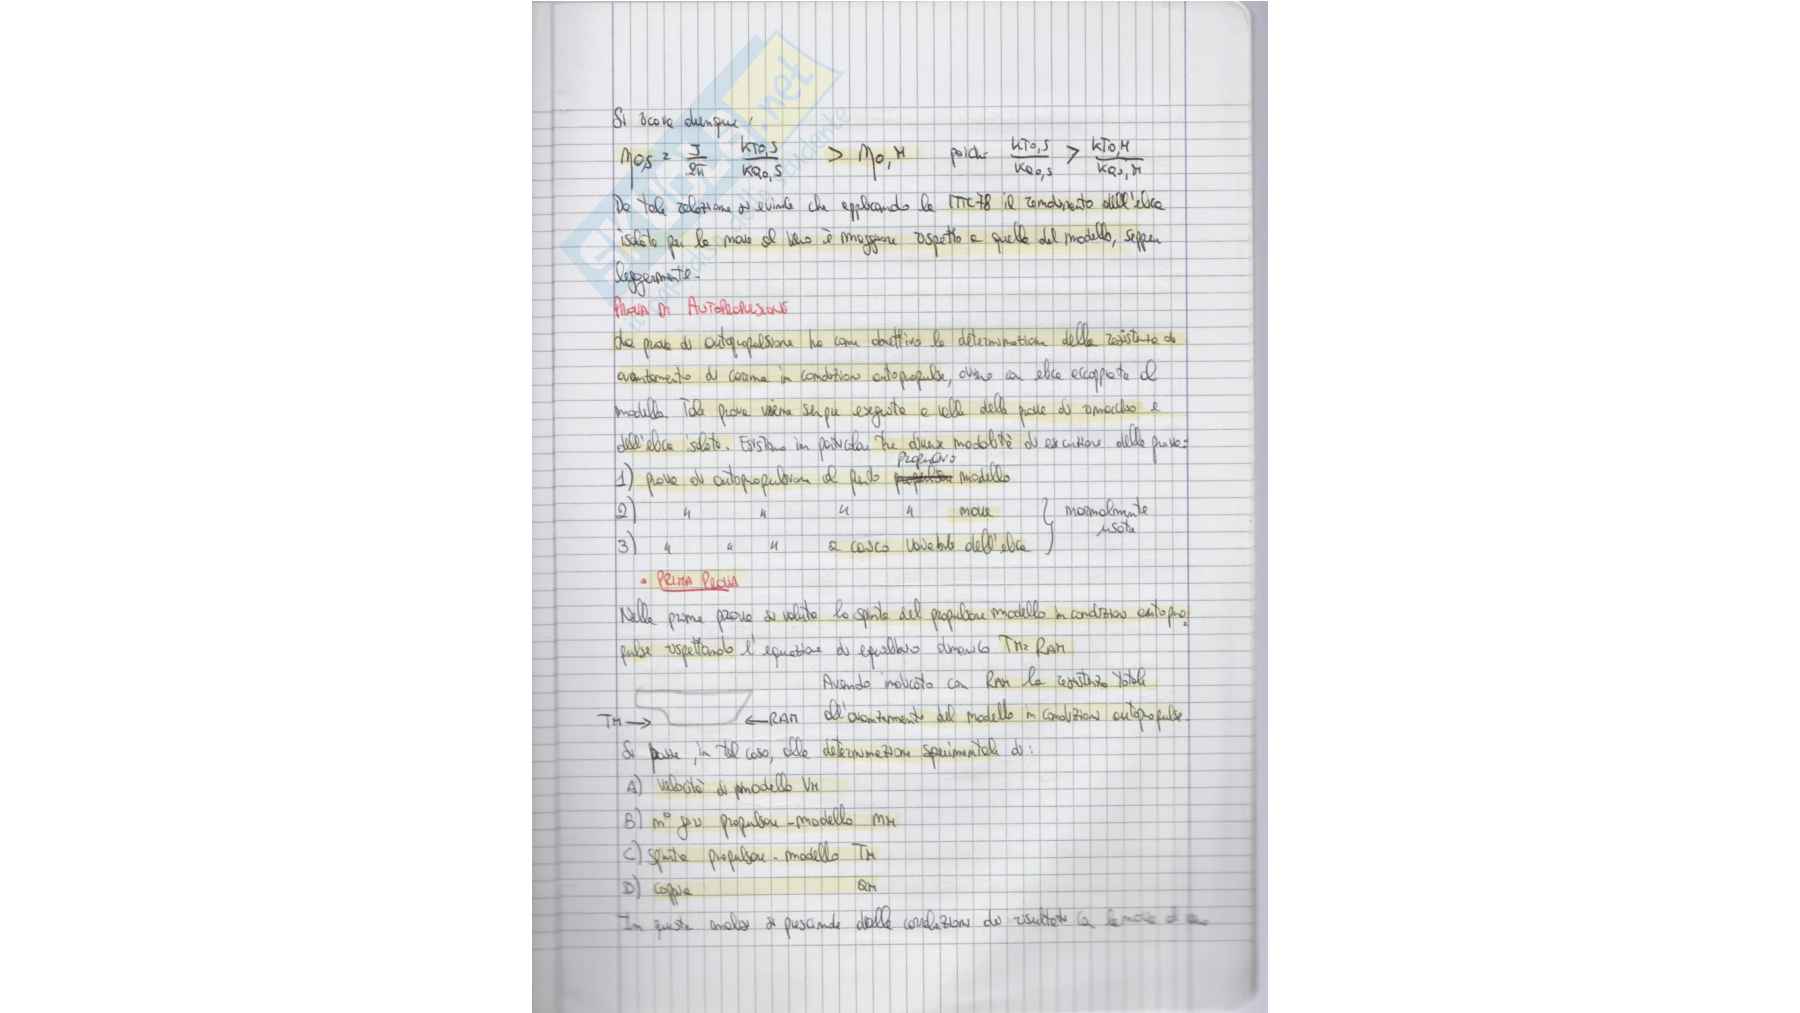 Si trova dunque:
η0,S = J/2π KT0,S/KQ0,S > η0,M poiché KT0,S/KQ0,S > KT0,M/KQ0,M
Da tale relazione si evince che applicando la ITTC78 il rendimento dell'elica
isolata per la nave al vero è maggiore rispetto a quello del modello, seppur
leggermente.
PROVA DI AUTOPROPULSIONE
La prova di autopropulsione ha come obiettivo la determinazione della resistenza di
avanzamento di carena in condizioni autopropulse, ovvero con elica accoppiata al
modello. Tale prova viene sempre eseguita a valle delle prove di rimorchio e
dell'elica isolata. Esistono in particolare tre diverse modalità di esecuzione della prova:
propulsivo
1) prova di autopropulsione al punto modello
2) " " " " nave } normalmente
usate
3) " " " a carico variabile dell'elica
• PRIMA PROVA
Nella prima prova si valuta la spinta del propulsore modello in condizioni autopro-
pulse rispettando l'equazione di equilibrio dinamico TM = RAM
Avendo indicato con RAM la resistenza totale
TM → ← RAM all'avanzamento del modello in condizioni autopropulse.
Si passa, in tal caso, alla determinazione sperimentale di:
A) velocità di modello VM
B) n° giri propulsore - modello nM
C) spinta propulsore - modello TM
D) coppia QM
In questa analisi si prescinde dalle condizioni di